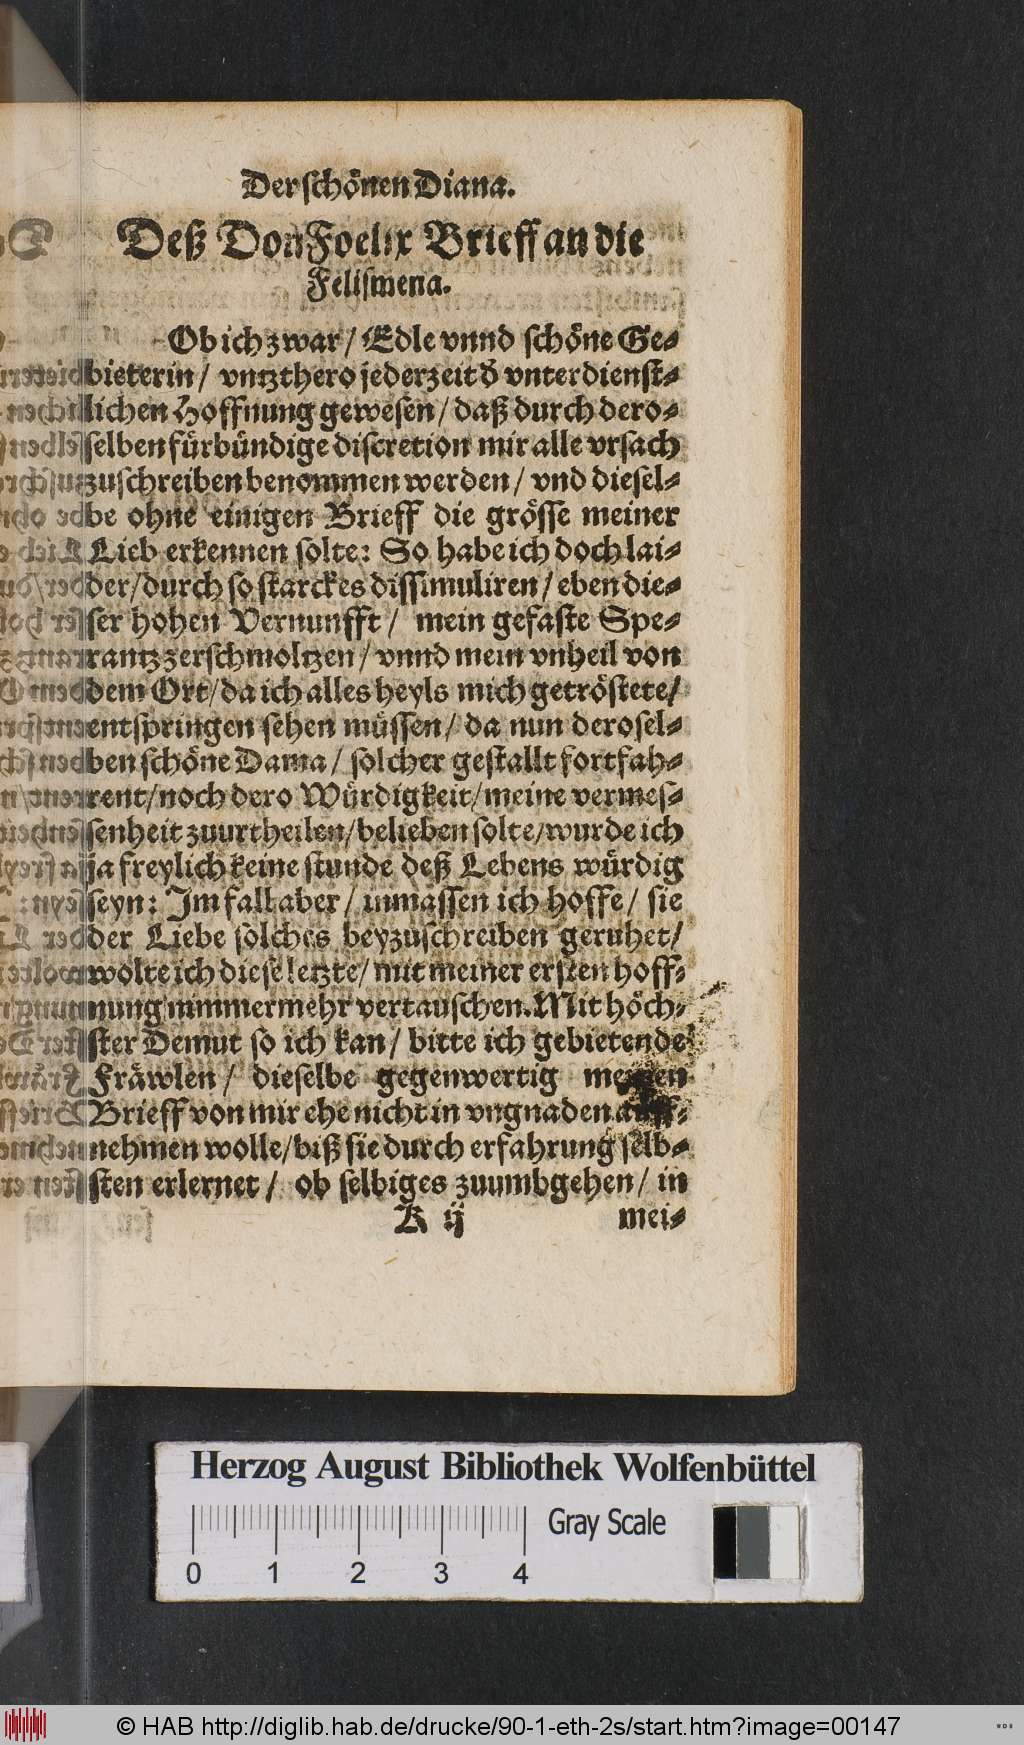 Der schönen Diana.
Deß Don Foelix Brieff an die
Felismena.
Ob ich zwar / Edle vnnd schöne Ge-
bieterin / vntzthero jederzeit d' vnterdienst-
lichen Hoffnung gewesen / daß durch dero-
selben fürbündige discretion mir alle vrsach
zuschreiben benommen werden / vnd diesel-
be ohne einigen Brieff die grösse meiner
Lieb erkennen solte: So habe ich doch lai-
der / durch so starckes dissimuliren / eben die-
ser hohen Vernunfft / mein gefaste Spe-
rantz zerschmoltzen / vnnd mein vnheil von
dem Ort / da ich alles heyls mich getröstete /
entspringen sehen müssen / da nun derosel-
ben schöne Dama / solcher gestallt fortfah-
rent / noch dero Würdigkeit / meine vermes-
senheit zuurtheilen / belieben solte / wurde ich
ja freylich keine stunde deß Lebens würdig
seyn: Im fall aber / inmassen ich hoffe / sie
der Liebe solches beyzuschreiben geruhet /
wolte ich diese letzte / mit meiner ersten hoff-
nung nimmermehr vertauschen. Mit höch-
ster Demut so ich kan / bitte ich gebietende
Fräwlen / dieselbe gegenwertig meinen
Brieff von mir ehe nicht in vngnaden auff-
nehmen wolle / biß sie durch erfahrung selb-
sten erlernet / ob selbiges zuumbgehen / in
K ij mei-
Herzog August Bibliothek Wolfenbüttel
Gray Scale
0 1 2 3 4
© HAB http://diglib.hab.de/drucke/90-1-eth-2s/start.htm?image=00147